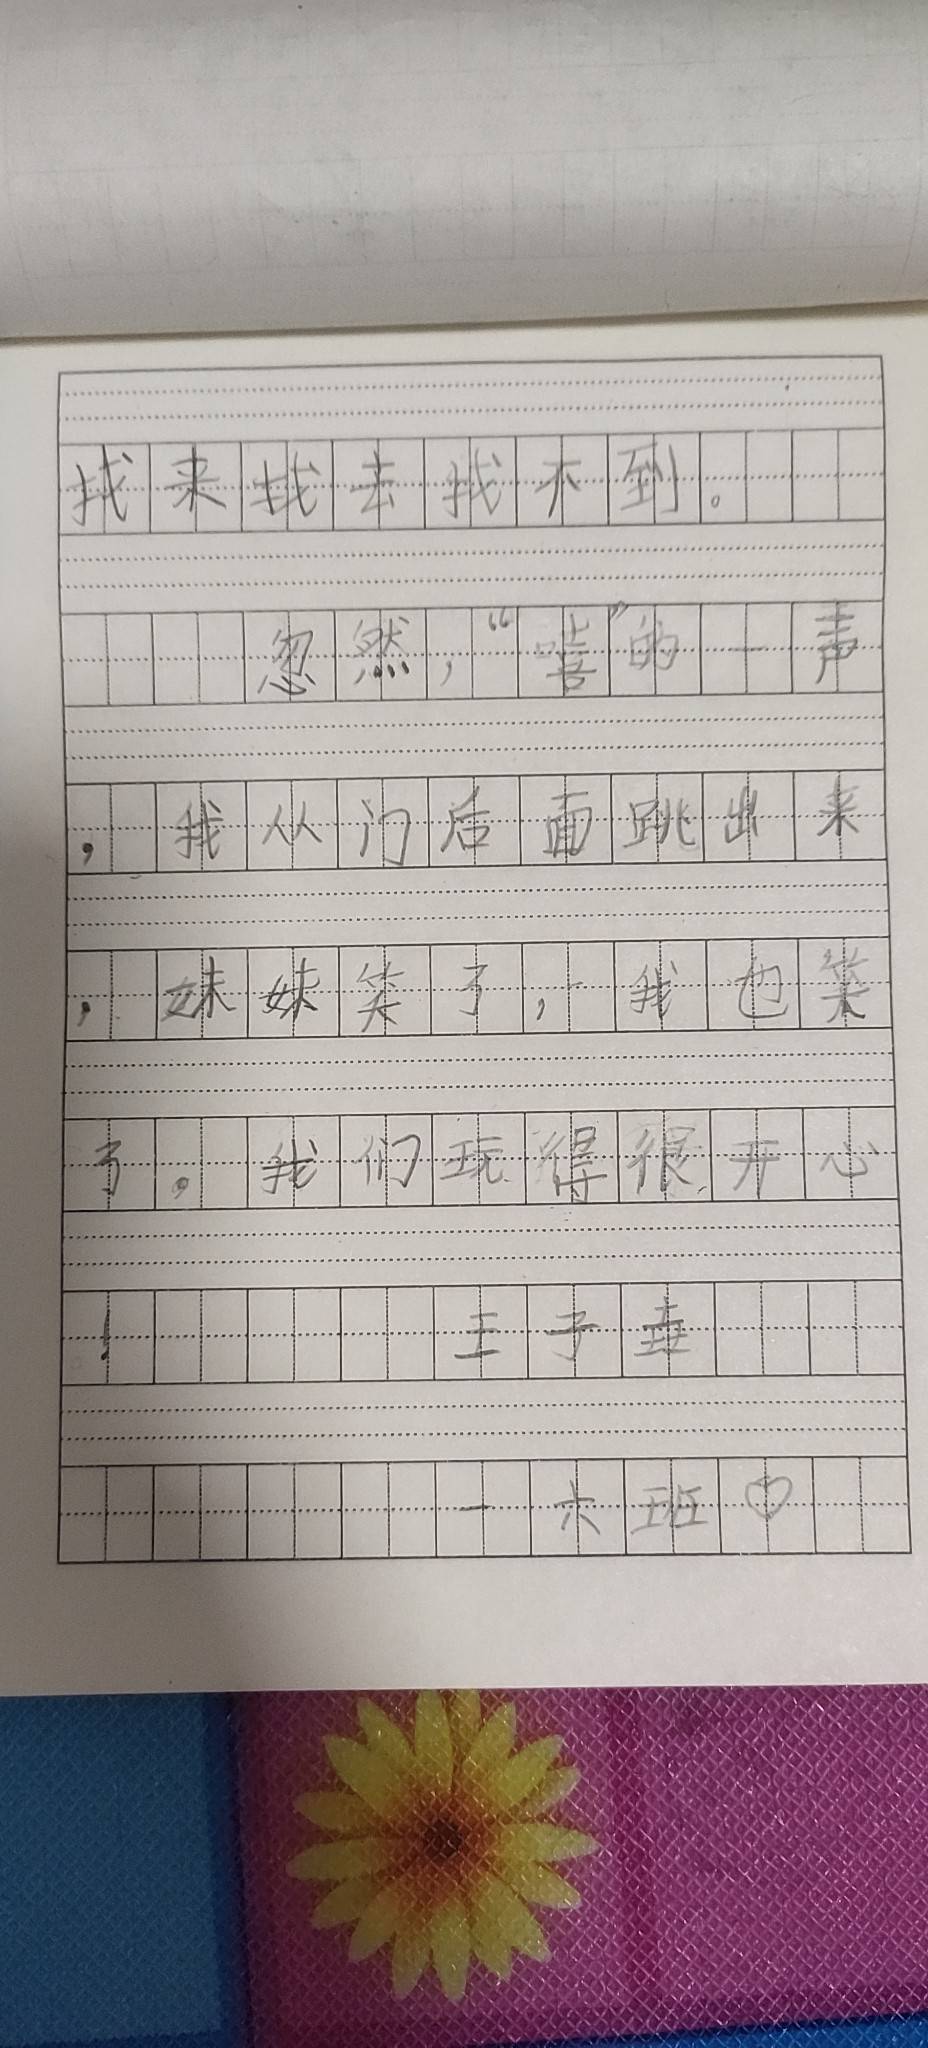 找来找去找不到。
忽然，“嘻”的一声
，我从门后面跳出来
，妹妹笑了，我也笑
了。我们玩得很开心
！ 王子垚
一六班♡